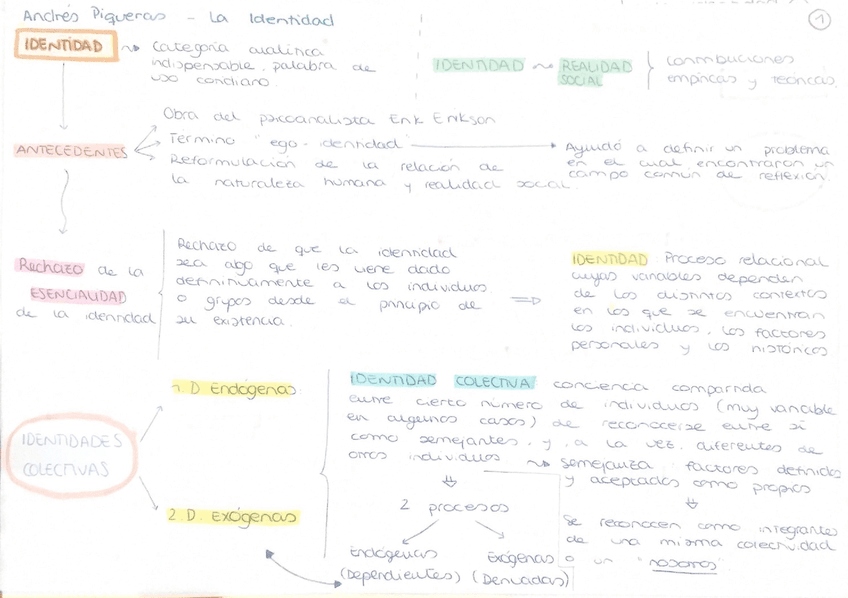 Andrés Piqueras - La Identidad
1
IDENTIDAD
Categoría analítica
indispensable, palabra de
uso cotidiano.
IDENTIDAD
REALIDAD
SOCIAL
Contribuciones
empíricas y teóricas.
ANTECEDENTES
Obra del psicoanalista Erik Erikson
Término "ego-identidad"
Reformulación de la relación de
la naturaleza humana y realidad social.
Ayudó a definir un problema
en el cual encontraron un
campo común de reflexión.
Rechazo de la
ESENCIALIDAD
de la identidad
Rechazo de que la identidad
sea algo que les viene dado
definitivamente a los individuos
o grupos desde el principio de
su existencia.
IDENTIDAD Proceso relacional
cuyas variables dependen
de los distintos contextos
en los que se encuentran
los individuos, los factores
personales y los históricos
IDENTIDADES
COLECTIVAS
1. D. Endógenas
2. D. Exógenas
IDENTIDAD COLECTIVA conciencia compartida
entre cierto número de individuos (muy variable
en algunos casos) de reconocerse entre sí
como semejantes, y, a la vez, diferentes de
otros individuos
semejanza: factores definidos
y aceptados como propios
Se reconocen como integrantes
de una misma colectividad
o un "nosotros"
2 procesos
Endógenas
(Dependientes)
Exógenas
(Derivadas)